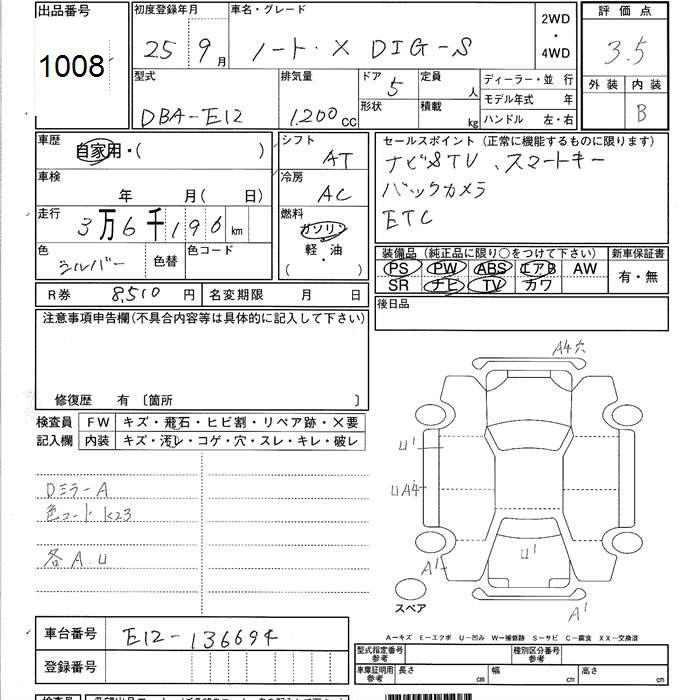 出品番号
1008
初度登録年月
25 9月
車名・グレード
ノート・X DIG-S
2WD
・
4WD
評価点
3.5
外装 内装
B
型式
DBA-E12
排気量
1.200cc
ドア 5
形状
定員 人
積載 kg
ディーラー・並 行
モデル年式 年
ハンドル 左・右
車歴
自家用・( )
車検
年 月( 日)
走行
3万6千196km
色
シルバー
色替
色コード
シフト
AT
冷房
AC
燃料
ガソリン
軽・油
( )
セールスポイント(正常に機能するものに限ります)
ナビ&TV、スマートキー
バックカメラ
ETC
装備品(純正品に限り○をつけて下さい)
PS PW ABS エアB AW
SR ナビ TV カワ
新車保証書
有・無
R券 8,510円
名変期限 月 日
後日品
注意事項申告欄(不具合内容等は具体的に記入して下さい)
修復歴 有 〔箇所 〕
検査員
記入欄
FW キズ・飛石・ヒビ割・リペア跡・×要
内装 キズ・汚レ・コゲ・穴・スレ・キレ・破レ
Dミラー A
色コード K23
各 A.U
A4穴
U'
UA4
U'
A'
A'
スペア
A－キズ E－エクボ U－凹み W－補修跡 S－サビ C－腐食 XX－交換済
車台番号
E12-136694
登録番号
型式指定番号
参考
種別区分番号
参考
車庫証明用
参考
長さ cm
幅 cm
高さ cm
検査員